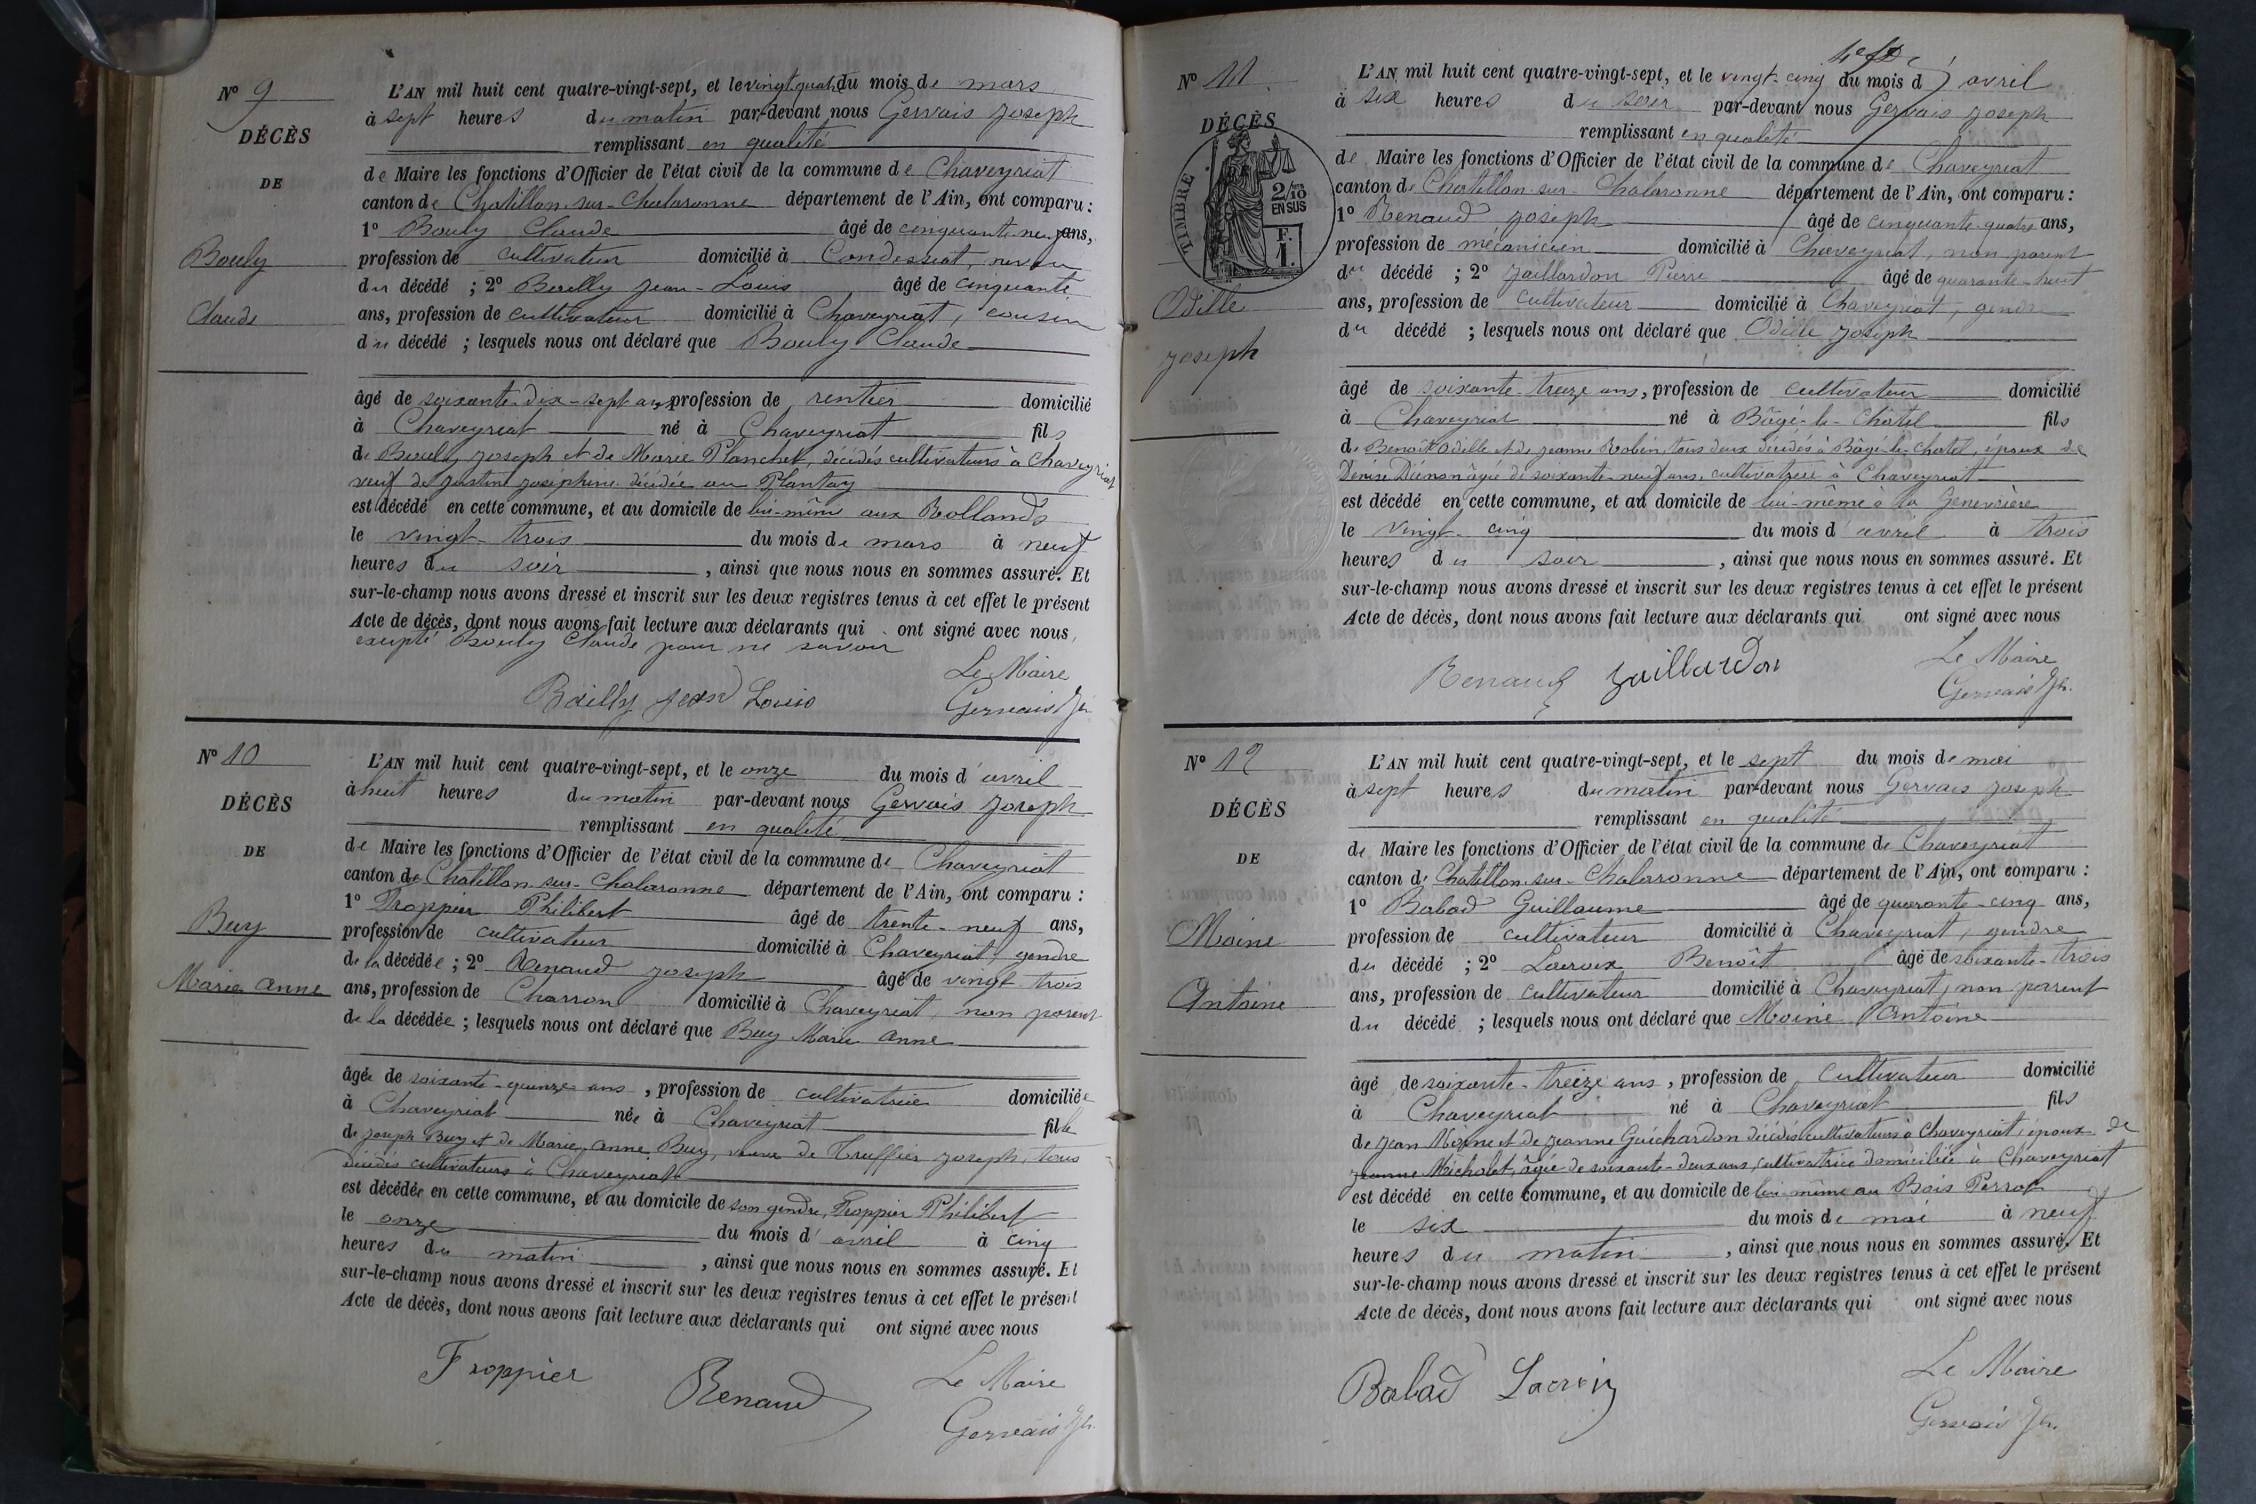 N° 9
DÉCÈS
DE
Bouly
Claude
L'AN mil huit cent quatre-vingt-sept, et le vingt quatre du mois de mars
à sept heures du matin par-devant nous Gervais Joseph
remplissant en qualité
de Maire les fonctions d'Officier de l'état civil de la commune de Chaveyriat
canton de Chatillon-sur-Chalaronne département de l'Ain, ont comparu :
1° Bouly Claude âgé de cinquante neuf ans,
profession de cultivateur domicilié à Condessiat, neveu
du décédé ; 2° Bailly Jean-Louis âgé de cinquante
ans, profession de cultivateur domicilié à Chaveyriat, cousin
du décédé ; lesquels nous ont déclaré que Bouly Claude
âgé de soixante-dix-sept ans, profession de rentier domicilié
à Chaveyriat né à Chaveyriat fils
de Bouly Joseph et de Marie Planchet, décédés cultivateurs à Chaveyriat
veuf de Justine Joséphine décédée au Plantay
est décédé en cette commune, et au domicile de lui-même aux Rollands
le vingt-trois du mois de mars à neuf
heures du soir, ainsi que nous nous en sommes assuré. Et
sur-le-champ nous avons dressé et inscrit sur les deux registres tenus à cet effet le présent
Acte de décès, dont nous avons fait lecture aux déclarants qui ont signé avec nous,
excepté Bouly Claude pour ne savoir
Le Maire
Bailly Jean Louis
Gervais Jh
N° 10
DÉCÈS
DE
Buy
Marie Anne
L'AN mil huit cent quatre-vingt-sept, et le onze du mois d'avril
à huit heures du matin par-devant nous Gervais Joseph
remplissant en qualité
de Maire les fonctions d'Officier de l'état civil de la commune de Chaveyriat
canton de Chatillon-sur-Chalaronne département de l'Ain, ont comparu :
1° Froppier Philibert âgé de trente-neuf ans,
profession de cultivateur domicilié à Chaveyriat, gendre
de la décédée ; 2° Renaud Joseph âgé de vingt trois
ans, profession de Charron domicilié à Chaveyriat, non parent
de la décédée ; lesquels nous ont déclaré que Buy Marie Anne
âgée de soixante-quinze ans, profession de cultivatrice domiciliée
à Chaveyriat née à Chaveyriat fille
de Joseph Buy et de Marie Anne Buy, veuve de Truffier Joseph, tous
décédés cultivateurs à Chaveyriat
est décédée en cette commune, et au domicile de son gendre, Froppier Philibert
le onze du mois d'avril à cinq
heures du matin, ainsi que nous nous en sommes assuré. Et
sur-le-champ nous avons dressé et inscrit sur les deux registres tenus à cet effet le présent
Acte de décès, dont nous avons fait lecture aux déclarants qui ont signé avec nous
Froppier Renaud
Le Maire
Gervais Jh.
N° 11
DÉCÈS
TIMBRE
2/10
EN SUS
F.
1.
Odille
Joseph
L'AN mil huit cent quatre-vingt-sept, et le vingt-cinq du mois d'avril
à six heures du soir par-devant nous Gervais Joseph
remplissant en qualité
de Maire les fonctions d'Officier de l'état civil de la commune de Chaveyriat
canton de Chatillon-sur-Chalaronne département de l'Ain, ont comparu :
1° Renaud Joseph âgé de cinquante-quatre ans,
profession de mécanicien domicilié à Chaveyriat, non parent
du décédé ; 2° Jaillardon Pierre âgé de quarante-huit
ans, profession de cultivateur domicilié à Chaveyriat, gendre
du décédé ; lesquels nous ont déclaré que Odille Joseph
âgé de soixante-treize ans, profession de cultivateur domicilié
à Chaveyriat né à Bâgé-le-Chatel fils
de Benoît Odille et de Jeanne Robin, tous deux décédés à Bâgé-le-Chatel, époux de
Denise âgée de soixante-neuf ans, cultivatrice à Chaveyriat
est décédé en cette commune, et au domicile de lui-même à la Genevrière
le vingt-cinq du mois d'avril à trois
heures du soir, ainsi que nous nous en sommes assuré. Et
sur-le-champ nous avons dressé et inscrit sur les deux registres tenus à cet effet le présent
Acte de décès, dont nous avons fait lecture aux déclarants qui ont signé avec nous
Le Maire
Renaud Jaillardon
Gervais Jh.
N° 12
DÉCÈS
DE
Moine
Antoine
L'AN mil huit cent quatre-vingt-sept, et le sept du mois de mai
à sept heures du matin par-devant nous Gervais Joseph
remplissant en qualité
de Maire les fonctions d'Officier de l'état civil de la commune de Chaveyriat
canton de Chatillon-sur-Chalaronne département de l'Ain, ont comparu :
1° Babad Guillaume âgé de quarante-cinq ans,
profession de cultivateur domicilié à Chaveyriat, gendre
du décédé ; 2° Lacroix Benoît âgé de soixante-trois
ans, profession de cultivateur domicilié à Chaveyriat, non parent
du décédé ; lesquels nous ont déclaré que Moine Antoine
âgé de soixante-treize ans, profession de cultivateur domicilié
à Chaveyriat né à Chaveyriat fils
de Jean Moine et de Jeanne Guichardon décédés cultivateurs à Chaveyriat, époux de
Jeanne Micholet, âgée de soixante-deux ans, cultivatrice domiciliée à Chaveyriat
est décédé en cette commune, et au domicile de lui-même au Bois Perrot
le six du mois de mai à neuf
heures du matin, ainsi que nous nous en sommes assuré. Et
sur-le-champ nous avons dressé et inscrit sur les deux registres tenus à cet effet le présent
Acte de décès, dont nous avons fait lecture aux déclarants qui ont signé avec nous
Babad Lacroix
Le Maire
Gervais Jh.